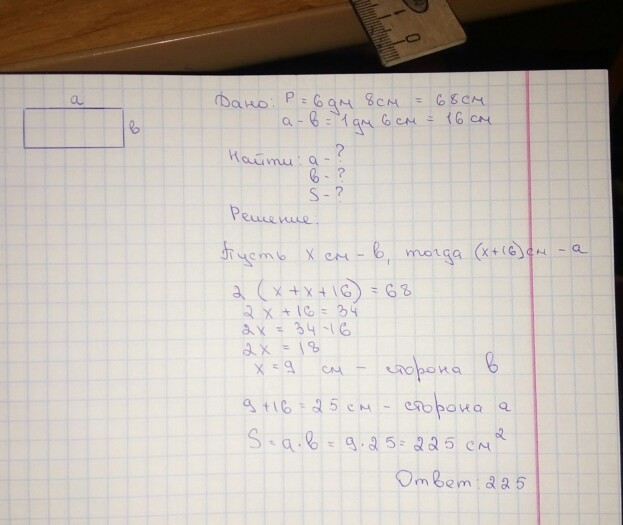 1 0
a
в
Дано: P = 6 дм 8 см = 68 см
a - в = 1 дм 6 см = 16 см
Найти: a - ?
в - ?
S - ?
Решение.
Пусть x см - в, тогда (x+16) см - a
2 (x + x + 16) = 68
2x + 16 = 34
2x = 34 - 16
2x = 18
x = 9 см - сторона в
9 + 16 = 25 см - сторона a
S = a · в = 9 · 25 = 225 см²
Ответ: 225